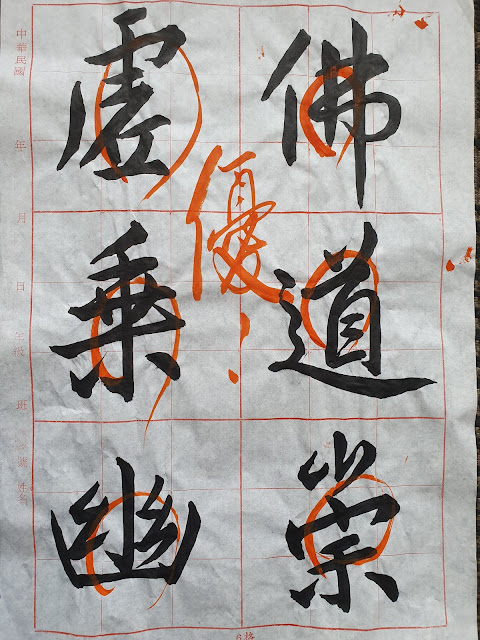 佛道崇
虛乘幽
優
中華民國 年 月 日 年級 班 號 姓名
6格